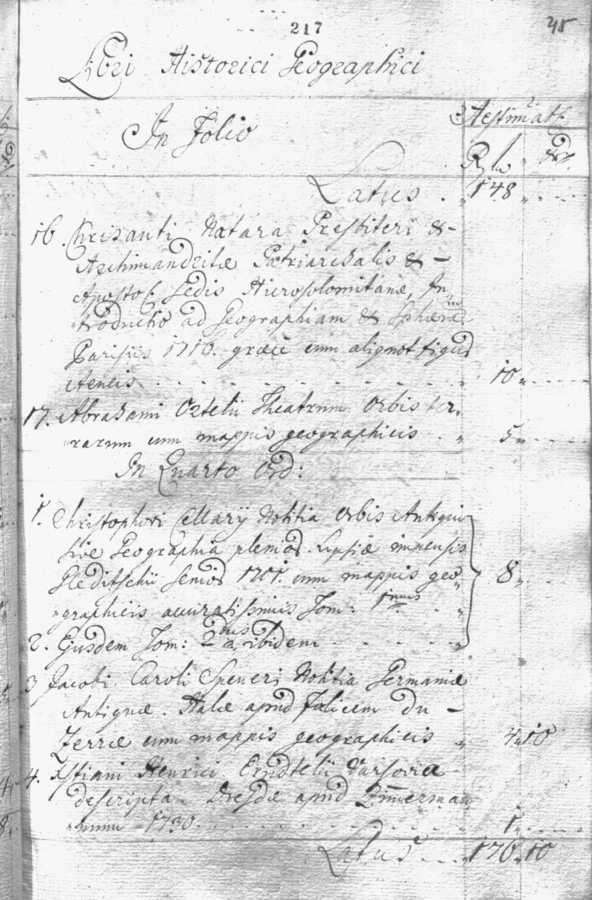 217
45
Libri Historici Geographici
In Folio
Aestimat.
Rh
Latus . . 148 „ . . .
16. Chrisanti Natara Presbiteri & -
Archimandritæ Patriarchalis & -
Aposto: Sedis Hierosolomitanæ, In
troductio ad Geographiam & Sphæra
Parisiis 1716. græce cum aliquot figuris
æneis . . . . . . . . 10 „ . . .
17. Abrahami Ortelii Theatrum Orbis ter,
„rarum cum mappis geographicis . . „ 5 „ . . .
In Quarto Ord:
1. Christophori Cellarÿ Notitia Orbis Antiqui
sive Geographia plenior Lipsiæ impensis
Gleditschii Senior 1701. cum mappis geo„
„graphicis accuratissimis Tom: 1mus „ 8 „ . . .
2. Ejusdem Tom: 2dus ibidem . . . . „
3 Jacobi Caroli Speneri Notitia Germaniæ
Antiquæ. Halæ apud
Zerræ cum mappis geographicis „ 4 „ 10
4. Xstiani Henrici Erndtelii Varsovia
descripta. Dresdæ apud Zimmerman
„num 1730. . . . . . . 1 „ . . .
Latus . . . „ 176 „ 10